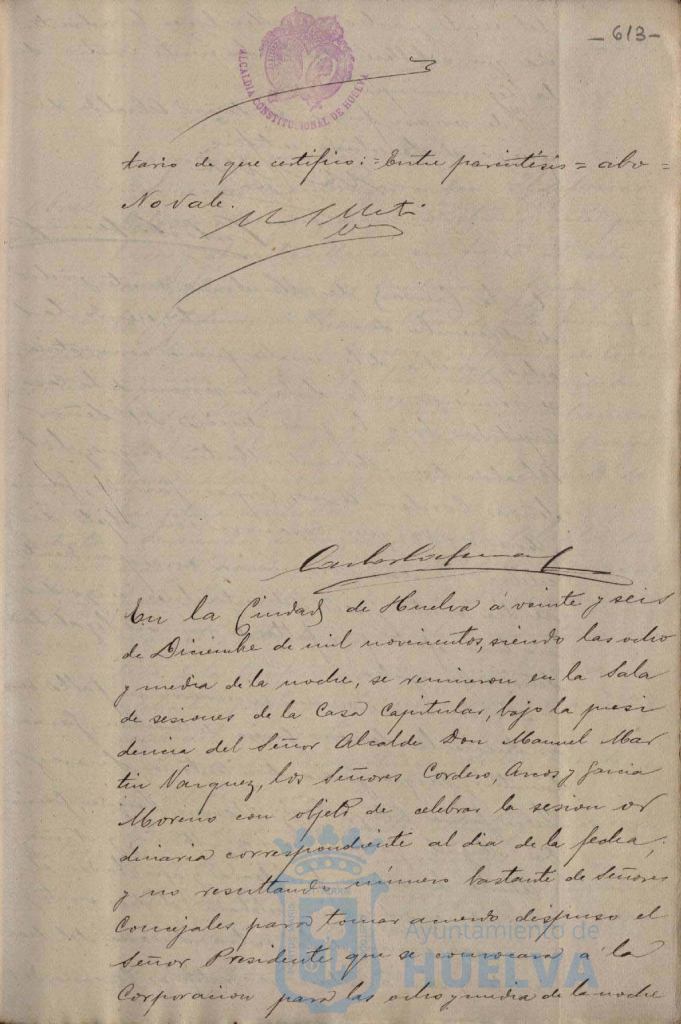 -613-
ALCALDIA CONSTITUCIONAL DE HUELVA
tario de que certifico: = Entre parintésis = abo =
No Vale.
En la Ciudad de Huelva á veinte y seis
de Diciembre de mil novecientos, siendo las ocho
y media de la noche, se reunieron en la Sala
de sesiones de la Casa Capitular, bajo la presi
dencia del Señor Alcalde Don Manuel Mar
tin Vazquez, los Señores Cordero, Arcos y Garcia
Moreno con objeto de celebrar la sesion or
dinaria correspondiente al dia de la fecha;
y no resultando número bastante de Señores
Concejales para tomar acuerdo dispuso el
Señor Presidente que se convocara á la
Corporacion para las ocho y media de la noche
Ayuntamiento de
HUELVA